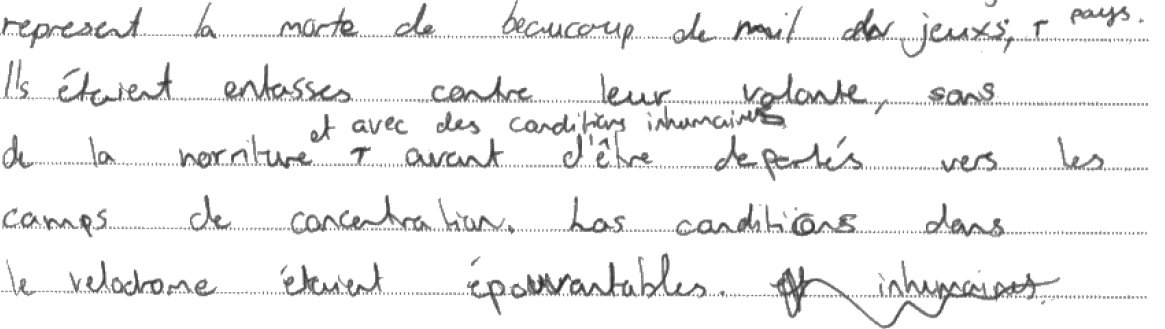 represent la morte de beaucoup de mail des jeuxs, pays.
Ils étaient entasses contre leur volonte, sans
et avec des conditions inhumaines
de la norriture avant d'être deportés vers les
camps de concentration. Las conditions dans
le velodrome étaient épouvantables. inhumaines.